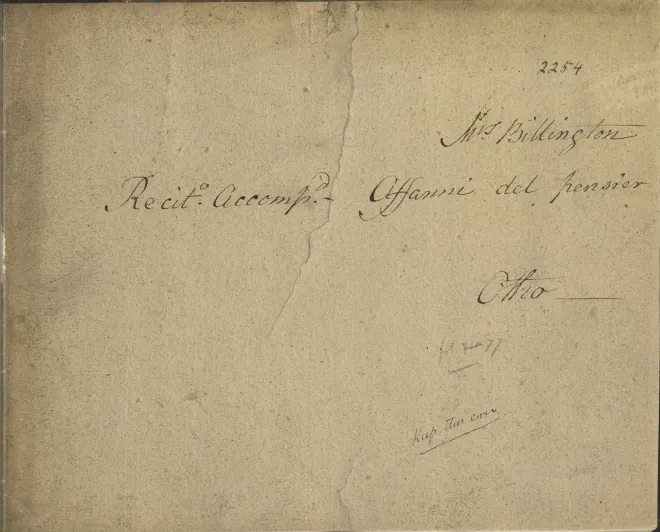 2254
Mrs Billington
Recito. Accompd.- Affanni del pensier
Ottio
Keep this cover